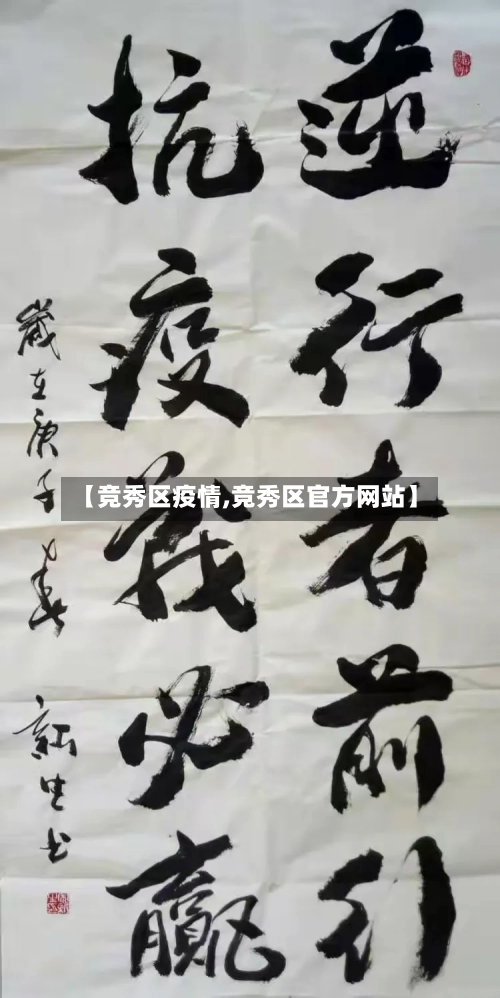 逆行者前引
抗疫戰必赢
歲在庚子春
【竞秀区疫情,竞秀区官方网站】